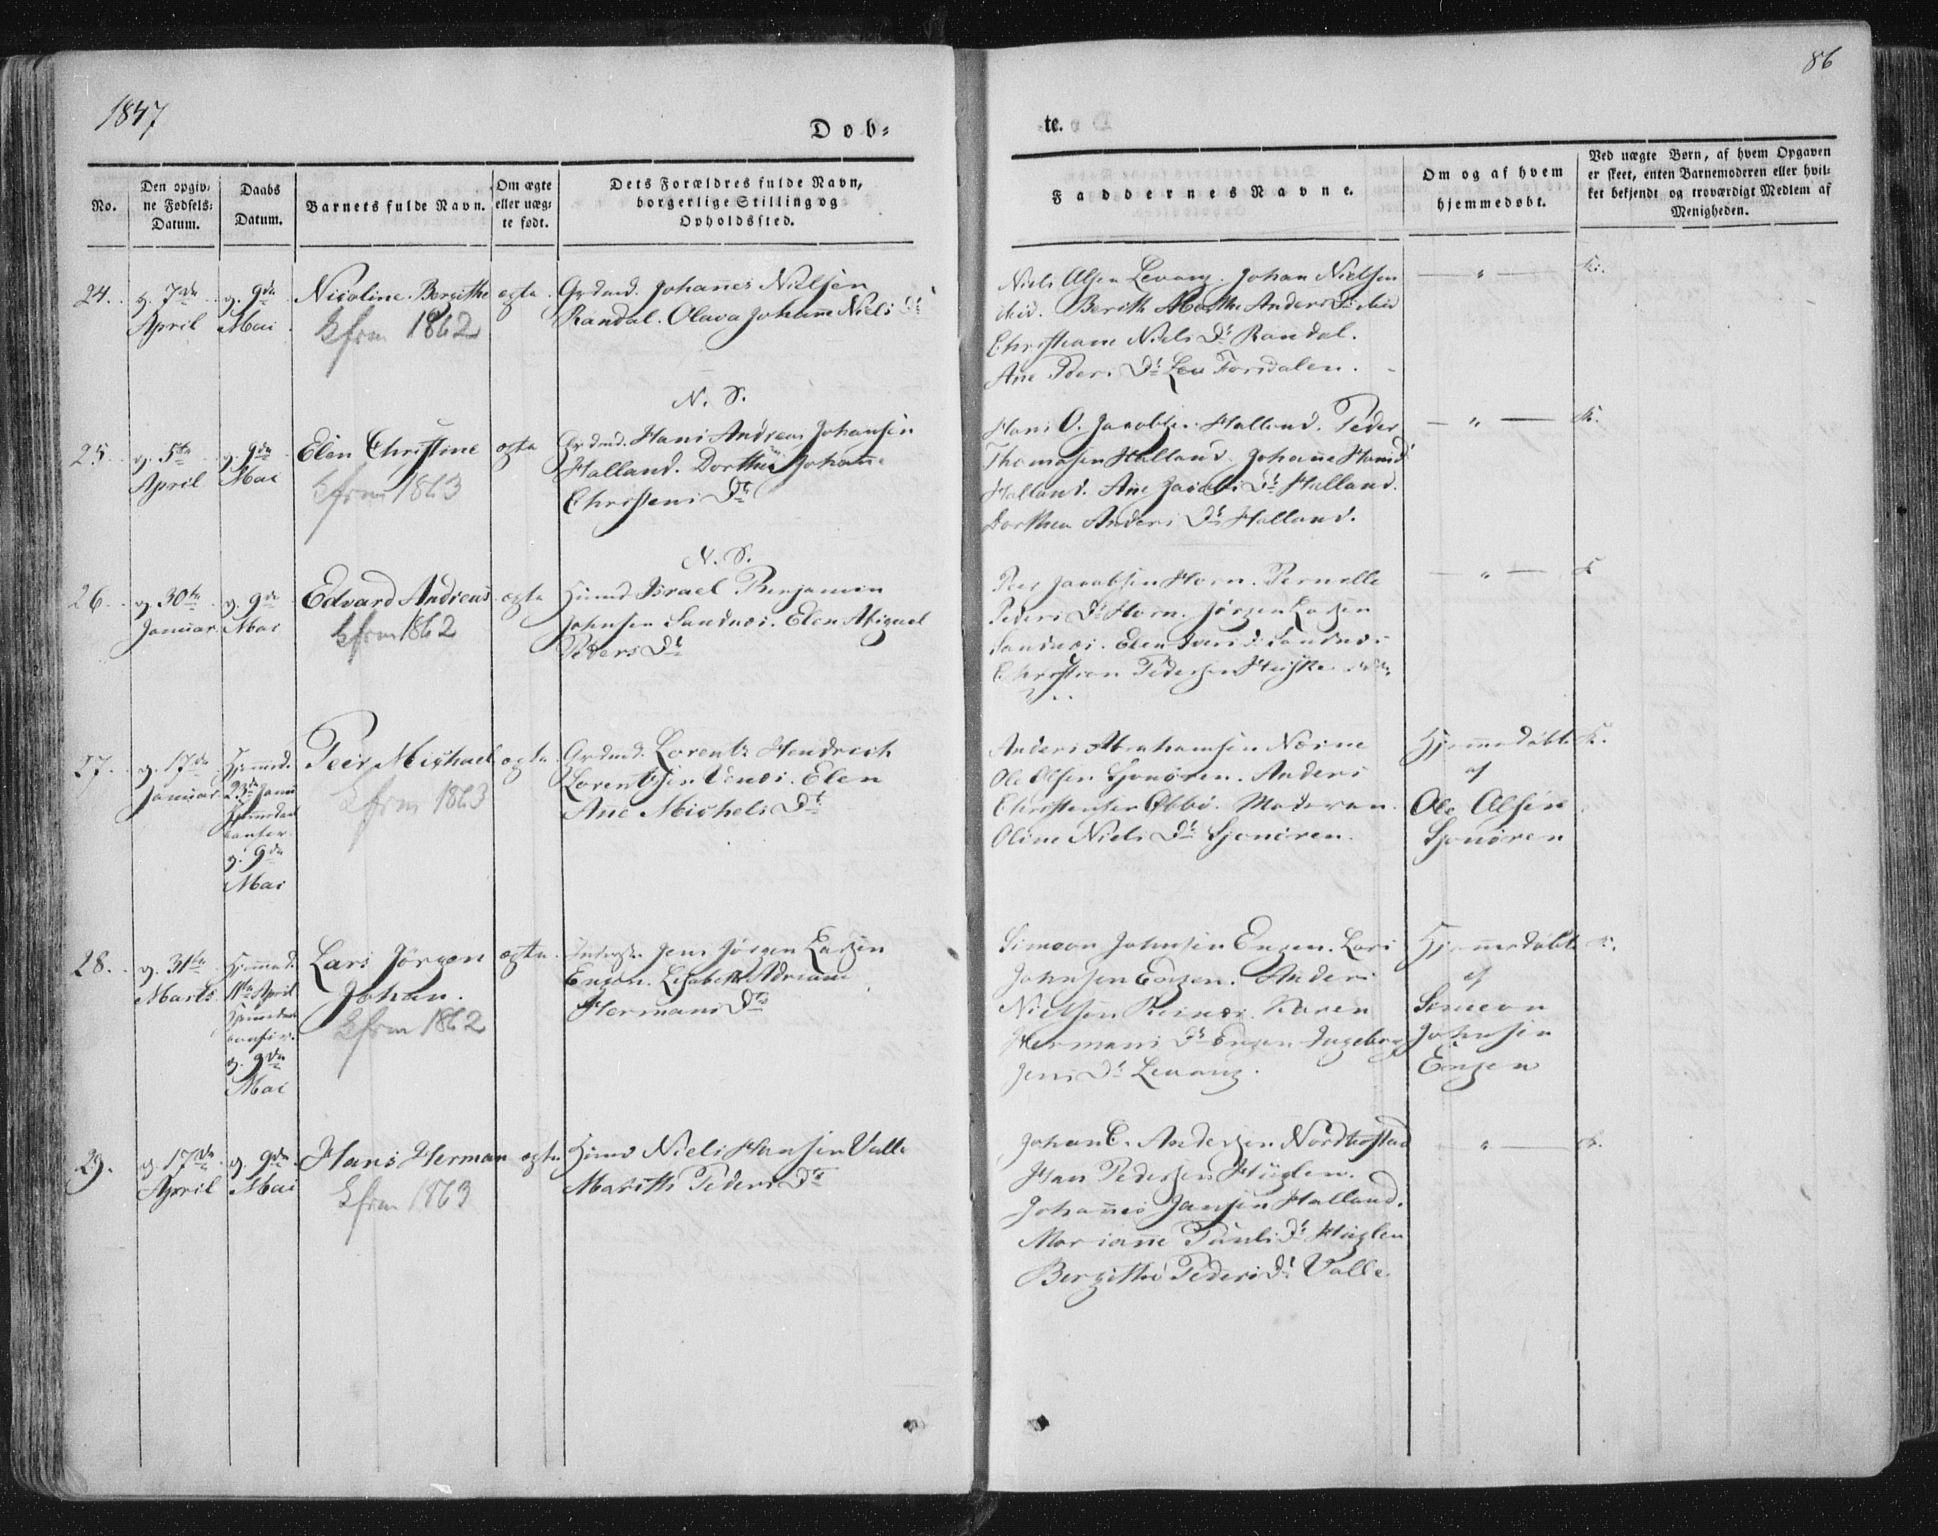 1847
86
Døb-
te.
No.
Den opgiv-
ne Fødsels-
Datum.
Daabs
Datum.
Barnets fulde Navn.
Om ægte
eller uæg-
te født.
Dets Forældres fulde Navn,
borgerlige Stilling og
Opholdssted.
Faddernes Navne.
Om og af hvem
hjemmedøbt.
Ved uægte Børn, af hvem Opgaven
er skeet, enten Barnemoderen eller hvil-
ket bekjendt og troværdigt Medlem af
Menigheden.
24. d. 7de April
d. 9de Mai
Nicoline Bergithe
Kfrm 1862
ægte
Grdmd. Johannes Nielsen
Randal. Olava Johanne Niels Dt
Niels Olsen Levang. Johan Nielsen
ibid. Berith Marthe Anders Dt ibid
Christiane Niels Dt Randal.
Ane Peders Dt Forsdalen.
25. d. 5te April
d. 9de Mai
Elen Christine
Kfrm 1863
ægte
N. S.
Grdmd. Hans Andreas Johansen
Halland. Dorthea Johanne
Christens Dt
Hans O. Jacobsen Halland. Peder
Thomasen Halland. Johanne Hans Dt
Halland. Ane Jacobs Dt Halland.
Dorthea Anders Dt Halland.
26. d. 30te Januar
d. 9de Mai
Edvard Andreas
Kfrm 1862
ægte
N. S.
Huusmd Israel Benjamin
Johnsen Sandnæs. Elen Abigael
Peders Dt
Peer Jacobsen Horn. Pernelle
Peders Dt Horn. Jørgen Larsen
Sandnæs. Elen Dt Sandnæs
Christian Pedersen
27. d. 17de Januar
Hjemmed.
23de Janu
d. 9de
Mai
Peer Michael
Kfrm 1863
ægte
Grdmd. Lorentz Hendrich
Lorentzsen Vænæs. Elen
Ane Michels Dt
Anders Abrahamsen Næsne
Ole Olsen Sjonøren. Anders
Christensen Øbbø. Moderen.
Oline Niels Dt Sjonøren.
Hjemmedøbt
af
Ole Olsen
Sjonøren
28. d. 31te Marts
Hjemmed.
11te April
d. 9de
Mai
Lars Jørgen
Johan.
Kfrm 1862
ægte
Jens Jørgen Larsen
Engen. Lisabeth Adriane
Hermans Dt
Simeon Johnsen Engen. Lars
Johnsen Engen. Anders
Nielsen Reinæs. Karen
Hermans Dt Engen. Ingeborg
Jens Dt Levang.
Hjemmedøbt
af
Simeon
Johnsen
Engen
29. d. 17de April
d. 9de Mai
Hans Herman
Kfrm 1863
ægte
Huusmd Niels Hansen Valle
Marith Peders Dt
Johan C. Andersen Nordbostad
Hans Pedersen Huglen.
Johannes Jansen Halland.
Mariane Pauls Dt Huglen
Bergithe Peders Dt Valle